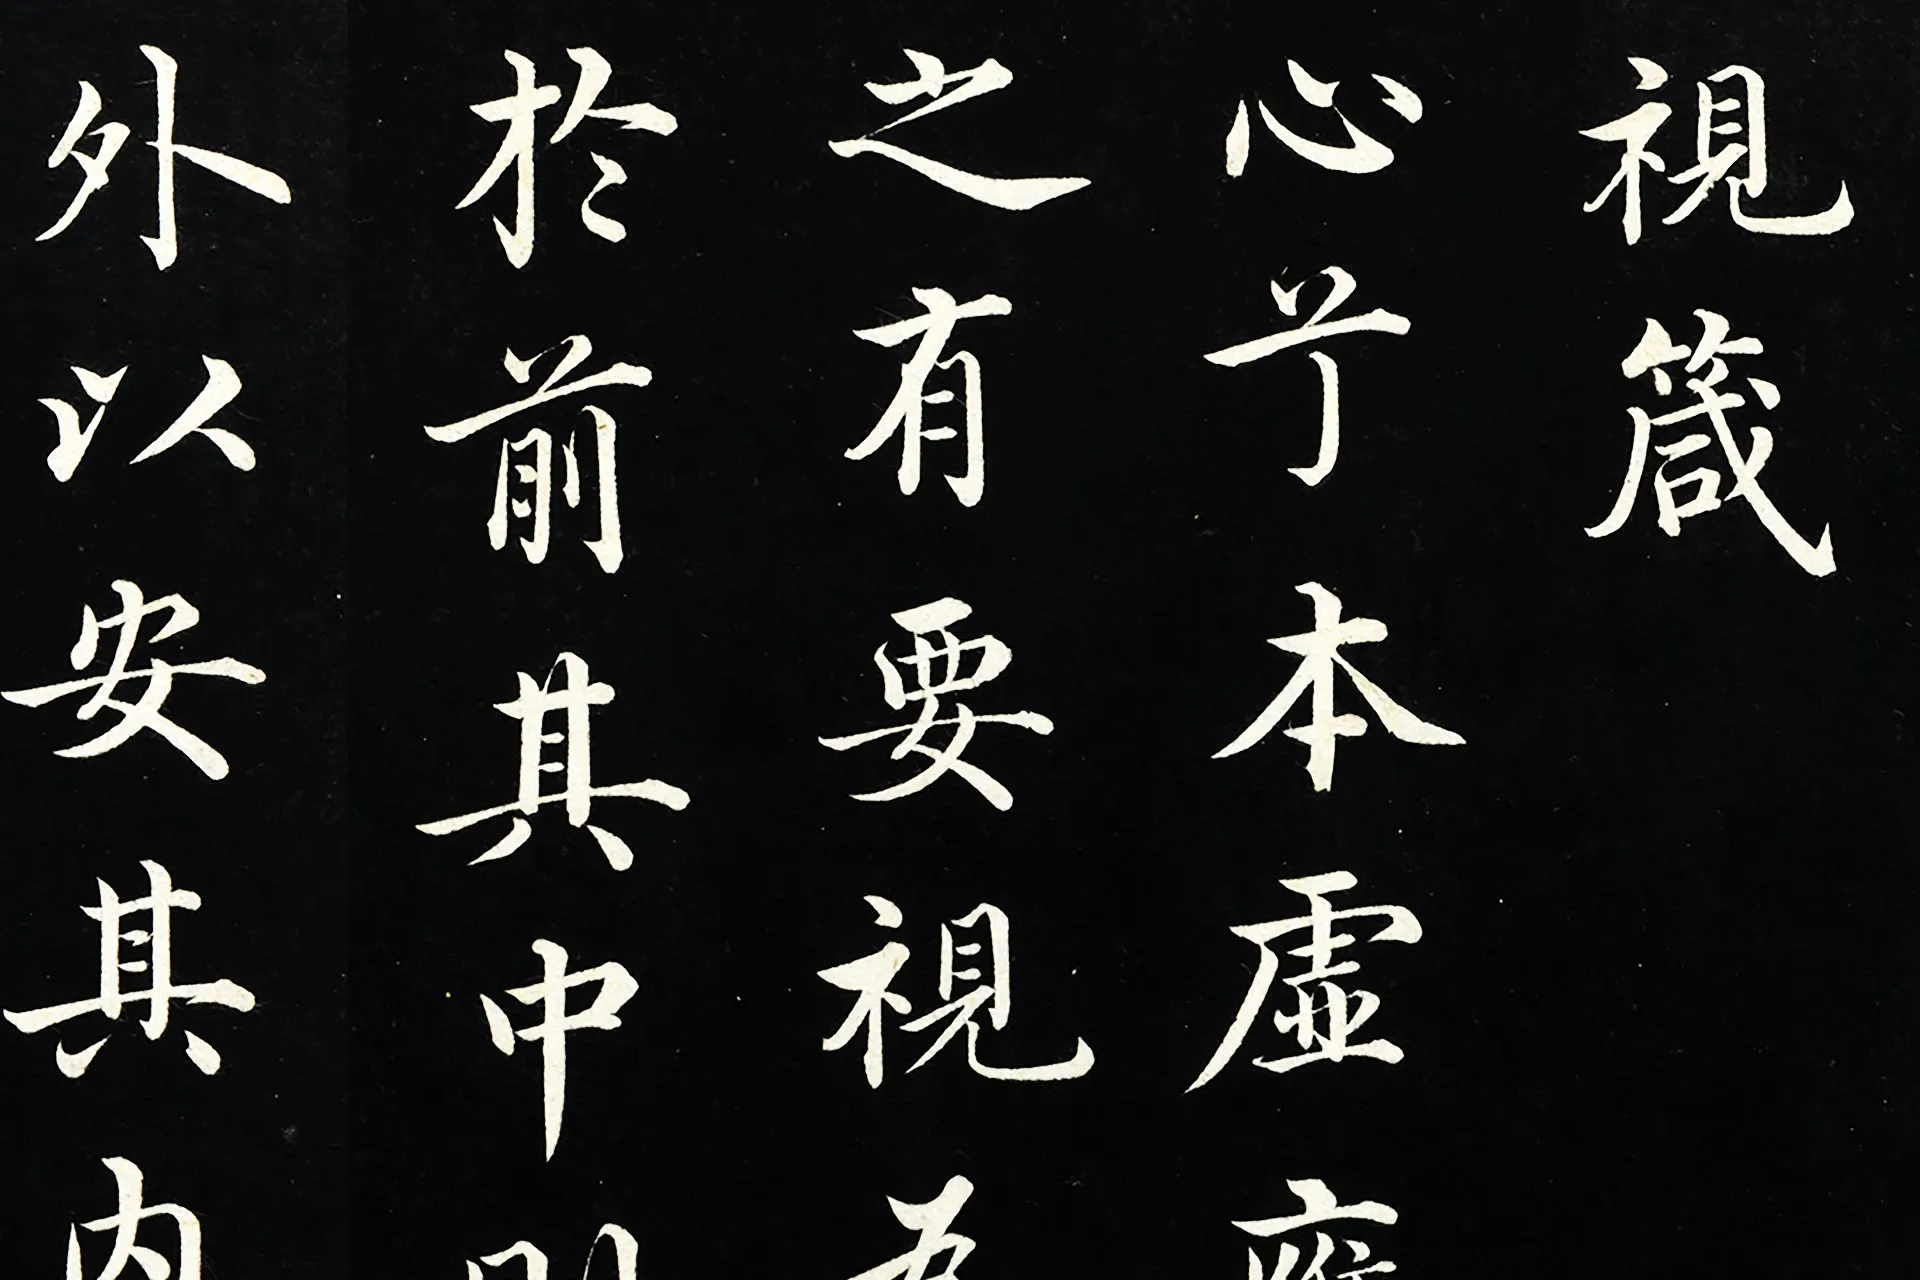 視箴
心兮本虛
之有要視
於前其中
外以安其内